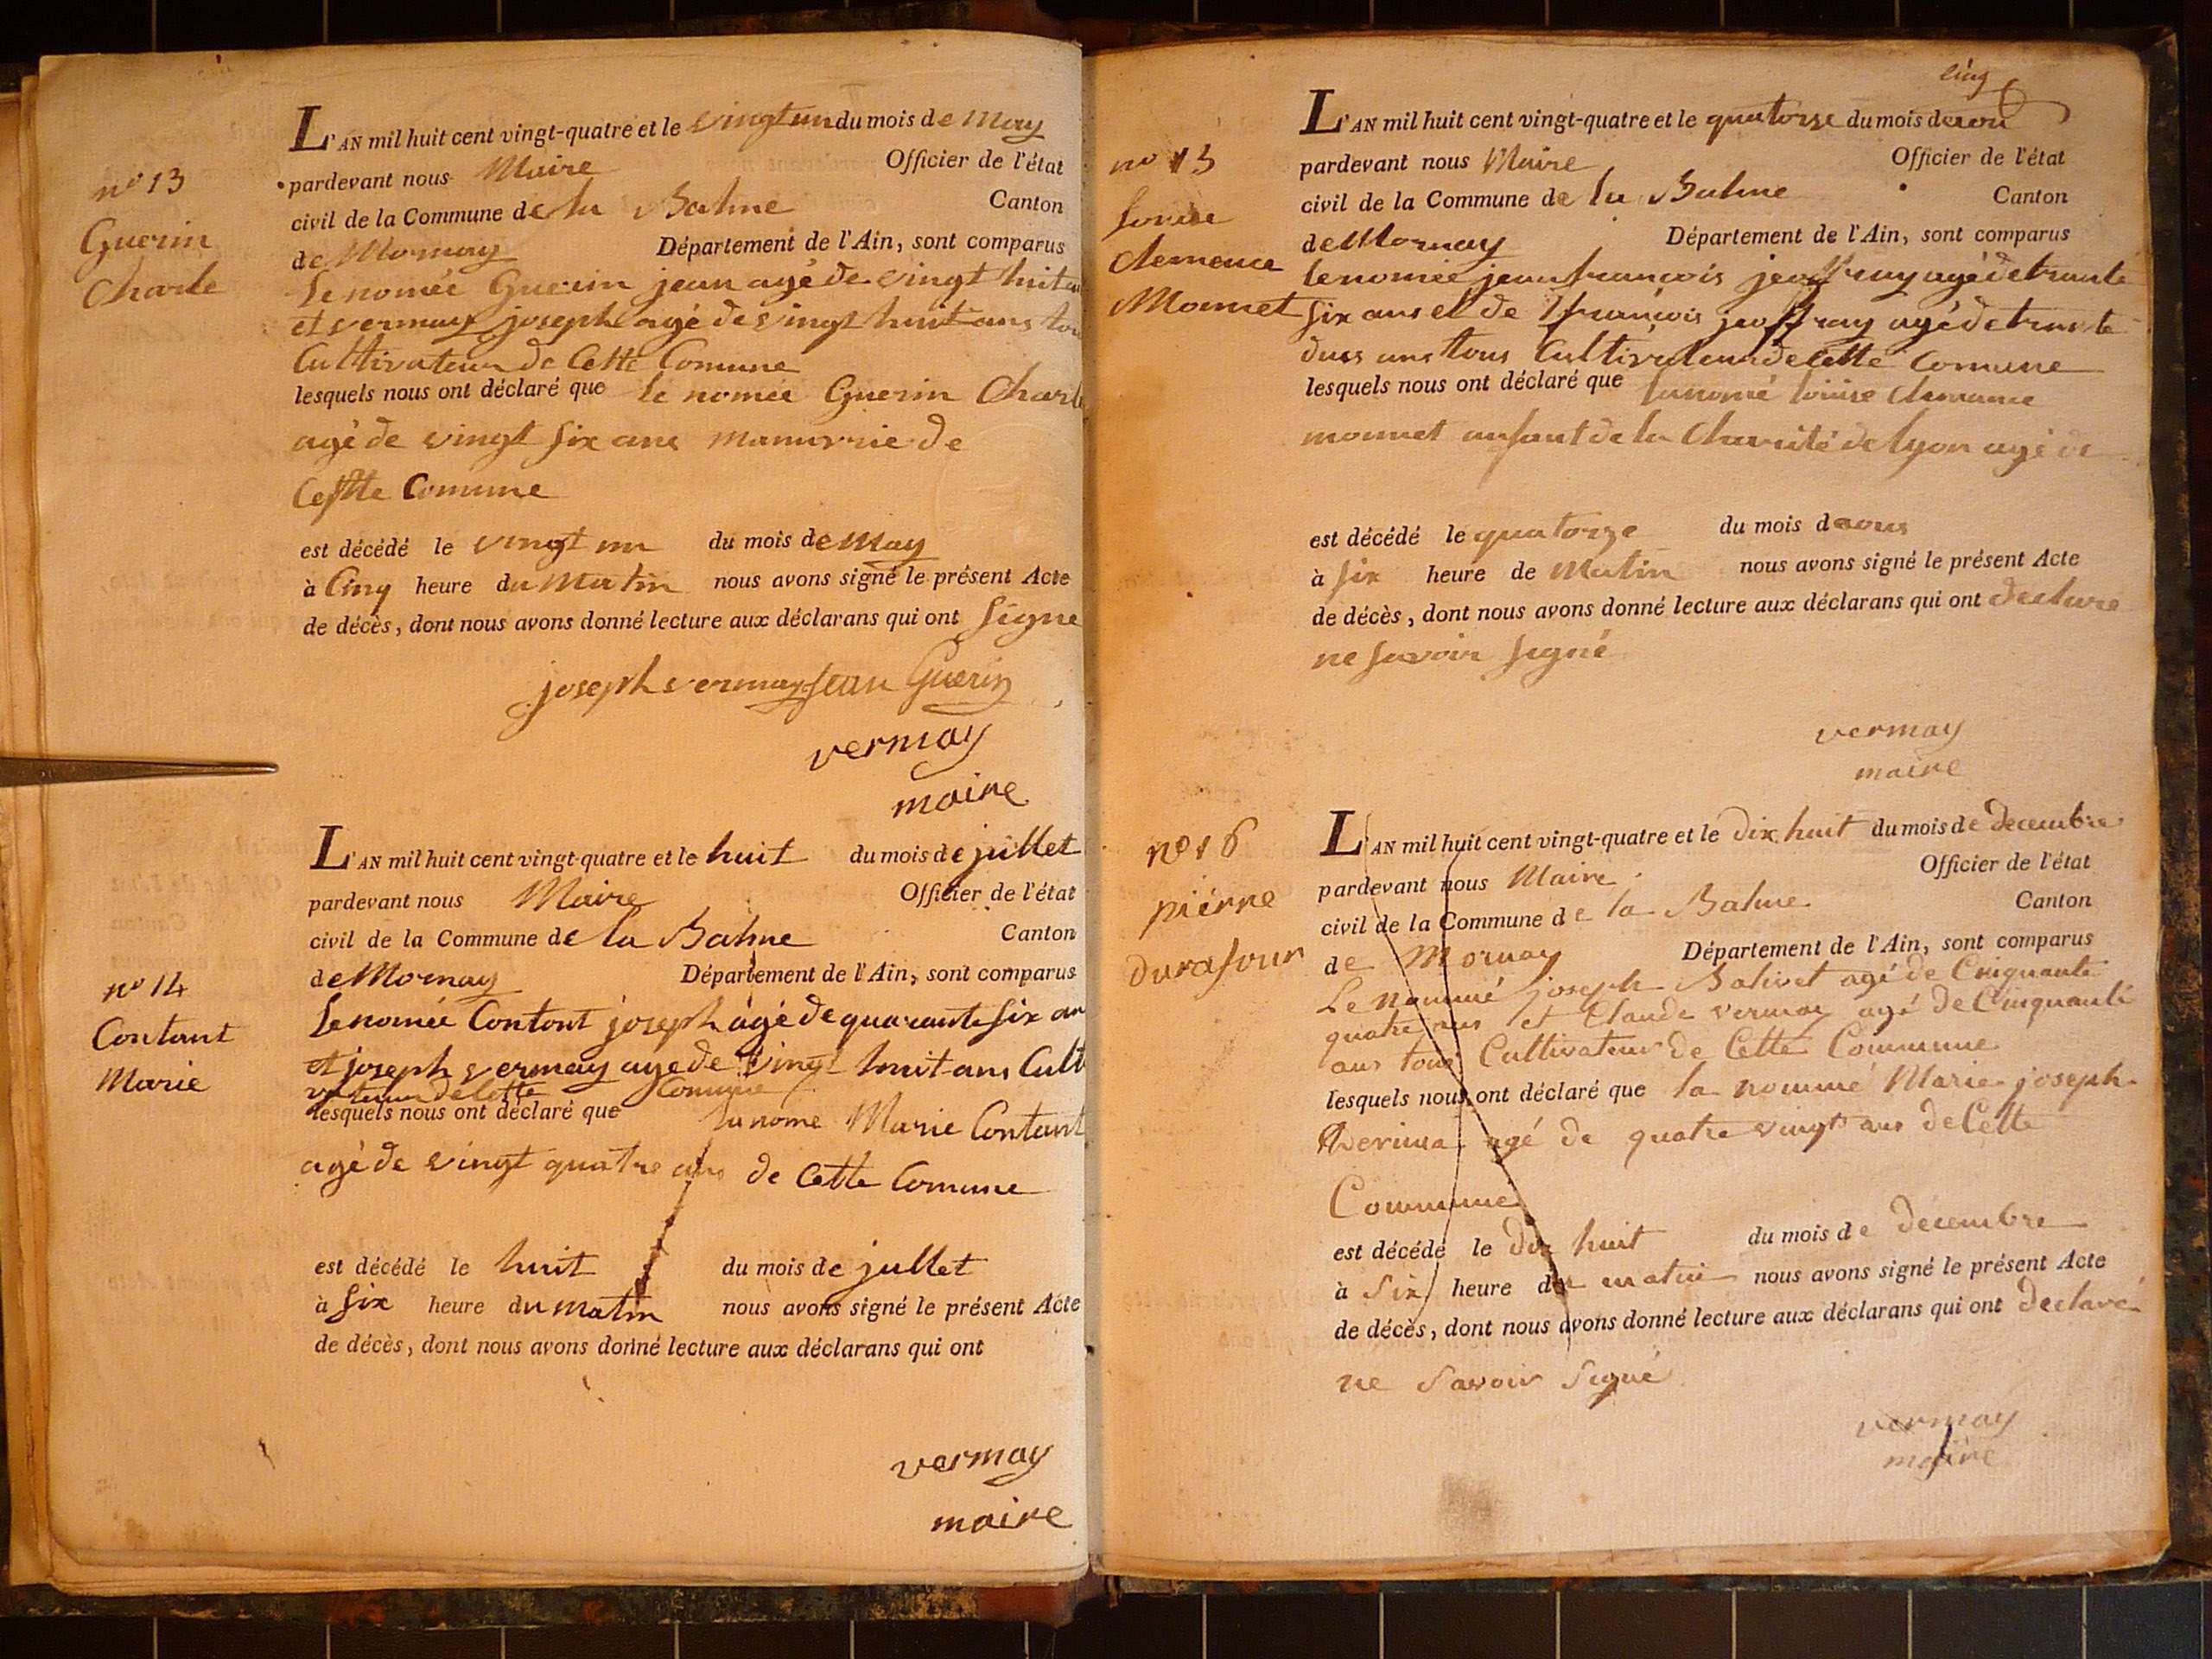 n° 13
Guerin
Charle
L'AN mil huit cent vingt-quatre et le vingt un du mois de may
pardevant nous Maire Officier de l'état
civil de la Commune de la Balme Canton
de Mornay Département de l'Ain, sont comparus
Le nomée Guerin jean agé de vingt huit
et vermay joseph agé de vingt huit ans
Cultivateur de Cette Comune
lesquels nous ont déclaré que le nomée Guerin Charle
agé de vingt six ans de
Cette Comune
est décédé le vingt un du mois de May
à Cinq heure du Matin nous avons signé le présent Acte
de décès, dont nous avons donné lecture aux déclarans qui ont Signe
joseph vermay jean Guerin
vermay
maire
n° 14
Contant
Marie
L'AN mil huit cent vingt-quatre et le huit du mois de juillet
pardevant nous Maire Officier de l'état
civil de la Commune de la Balme Canton
de Mornay Département de l'Ain, sont comparus
Le nomée Contont joseph agé de quarante six an
et joseph vermay age de vingt huit ans Cult
vateur de Cette Comune
lesquels nous ont déclaré que la nome Marie Contant
agé de vingt quatre ans de Cette Comune
est décédé le huit du mois de jullet
à six heure du matin nous avons signé le présent Acte
de décès, dont nous avons donné lecture aux déclarans qui ont
vermay
maire
cinq
n° 15
louise
clemence
Monnet
L'AN mil huit cent vingt-quatre et le quatorze du mois de
pardevant nous Maire Officier de l'état
civil de la Commune de la Balme Canton
de Mornay Département de l'Ain, sont comparus
le nomée jean francois jeoffray agé de trante
six ans et de francois jeoffray agé de trante
dues ans tous Cultivateur de Cette Comune
lesquels nous ont déclaré que la nomé louise clemance
monnet anfant de la Charité de lyon agé de
est décédé le quatorze du mois de
à six heure de Matin nous avons signé le présent Acte
de décès, dont nous avons donné lecture aux déclarans qui ont declare
ne savoir signé
vermay
maire
n° 16
pierre
durafour
L'AN mil huit cent vingt-quatre et le dix huit du mois de decembre
pardevant nous Maire Officier de l'état
civil de la Commune de la Balme Canton
de Mornay Département de l'Ain, sont comparus
Le nommé joseph Balivet agé de Cinquante
quatre ans et Claude vermay agé de Cinquante
ans tous Cultivateur de Cette Commune
lesquels nous ont déclaré que la nommé Marie joseph
agé de quatre vingt ans de Cette
Commune
est décédé le dix huit du mois de decembre
à Six heure du matin nous avons signé le présent Acte
de décès, dont nous avons donné lecture aux déclarans qui ont declaré
ne Savoir Signé
vermay
maire